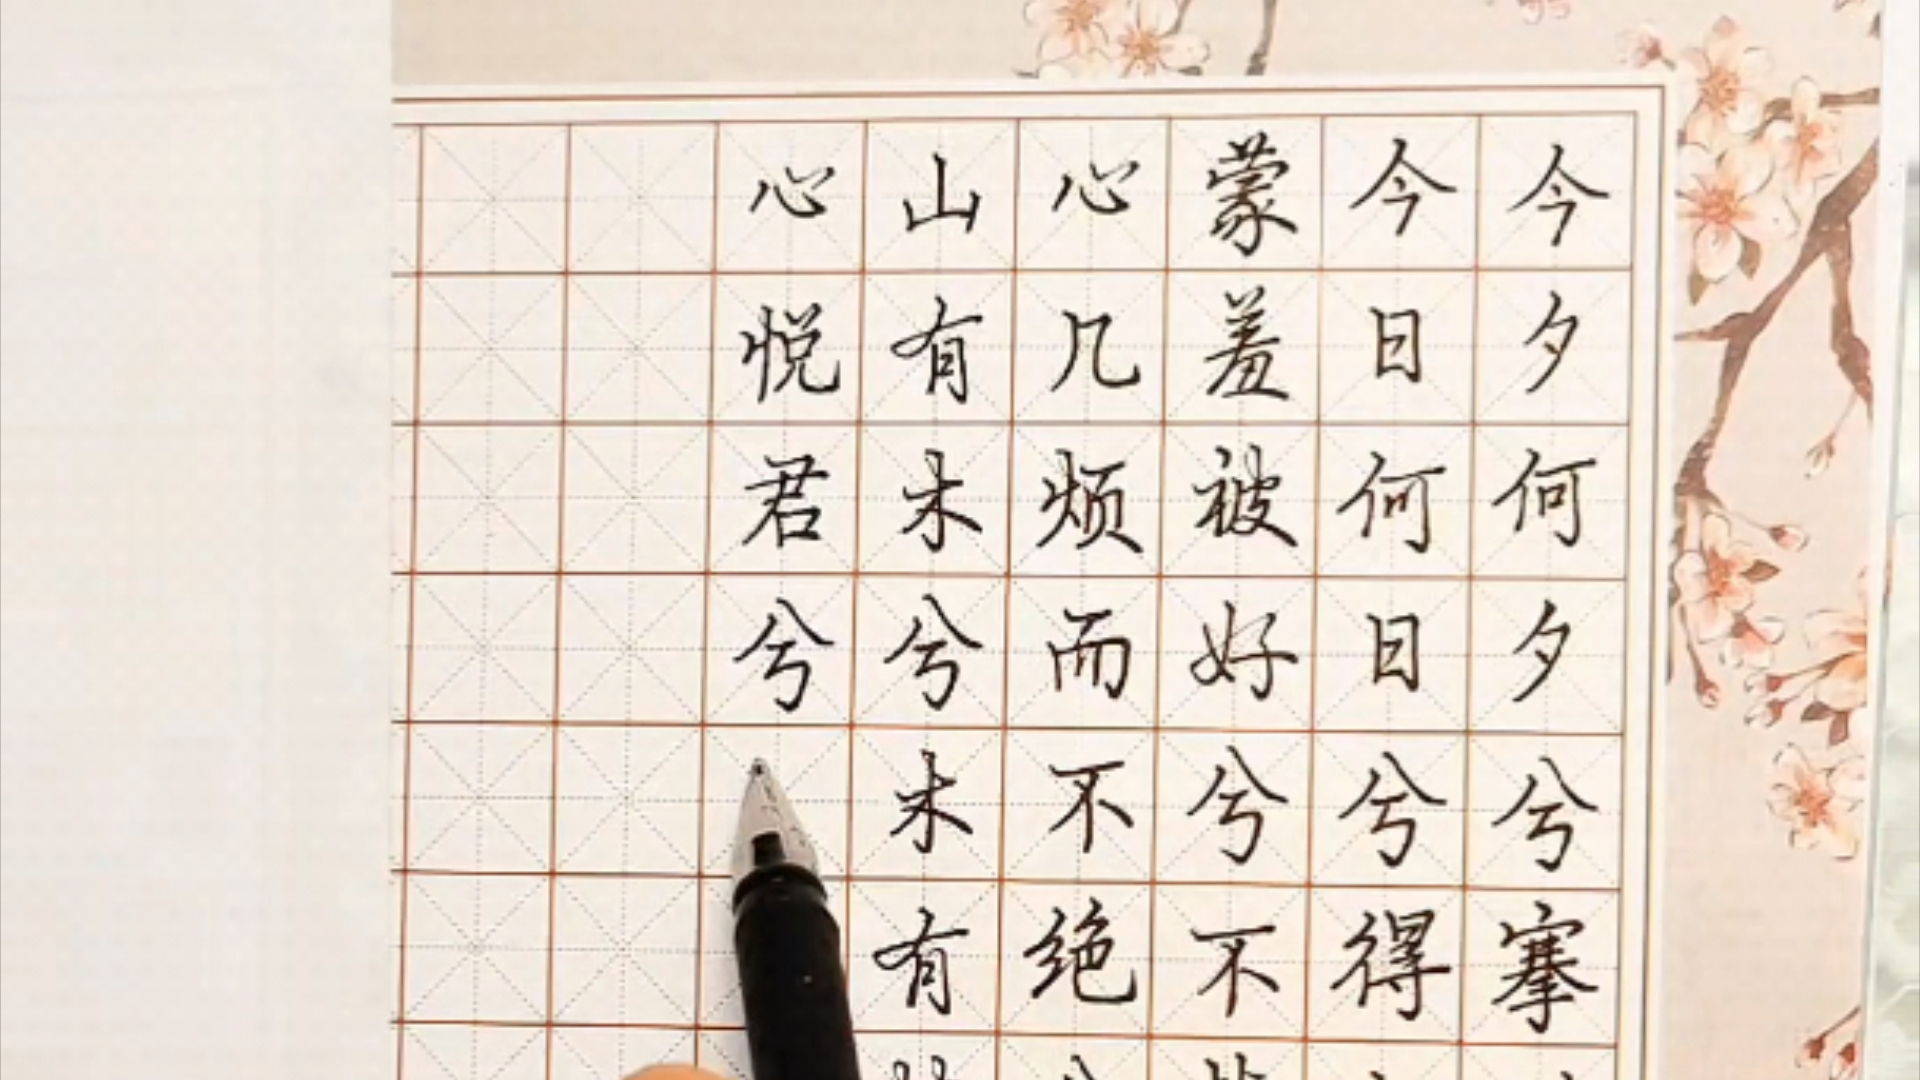 今夕何夕兮搴
今日何日兮得
蒙羞被好兮不
心几烦而不绝
山有木兮木有
心悦君兮